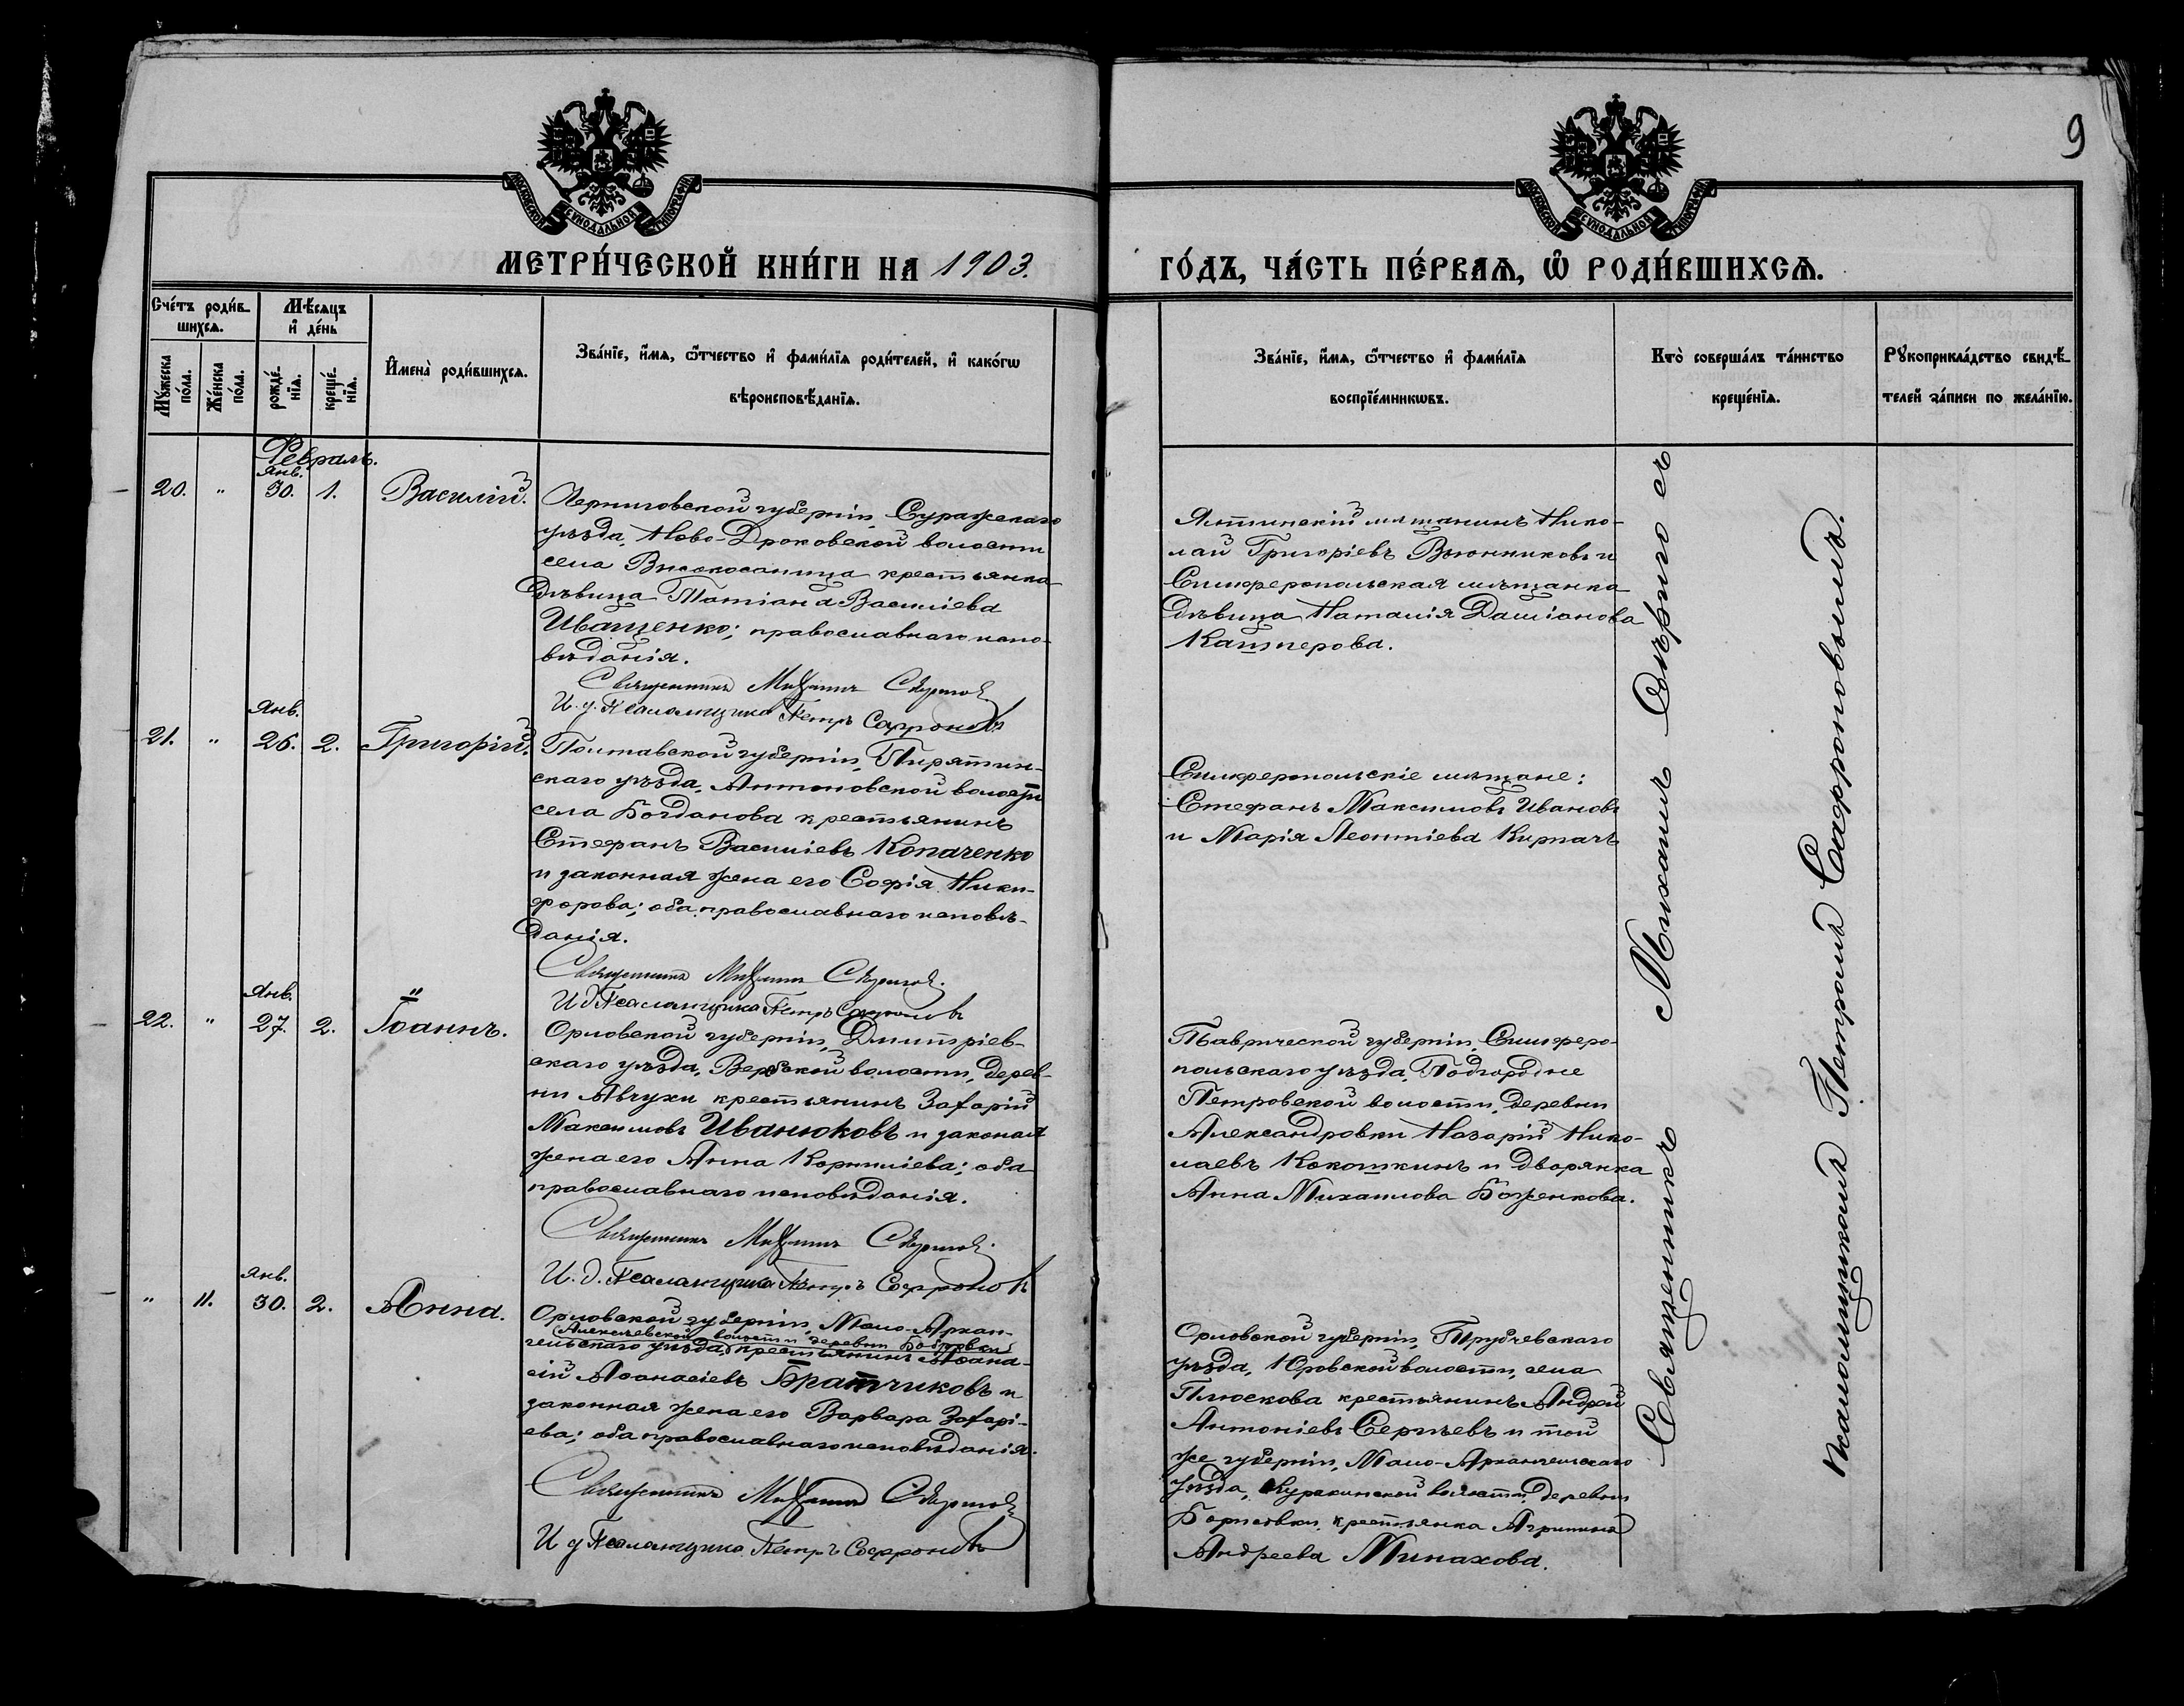 9
МОСКОВСКОЙ СУНОДАЛЬНОЙ ТИПОГРАФІИ
МОСКОВСКОЙ СУНОДАЛЬНОЙ ТИПОГРАФІИ
МЕТРИ́ЧЕСКОЙ КНИ́ГИ НА 1903.
ГО́ДЪ, ЧА́СТЬ ПЕ́РВАѦ, Ѽ РОДИ́ВШИХСѦ.
Сче́тъ роди́в-
шихсѧ.
Мꙋ́жеска
по́ла.
Же́нска
по́ла.
Мѣ́сѧцъ
и҆ де́нь
рожде́-
нїѧ.
креще́-
нїѧ.
И҆мена̀ роди́вшихсѧ.
Зва́нїе, и҆́мѧ, ѻ҆́тчество и҆ фами́лїѧ роди́телей, и҆ како́гѡ
вѣроисповѣ́данїѧ.
Зва́нїе, и҆́мѧ, ѻ҆́тчество и҆ фами́лїѧ
воспрїе́мникѡвъ.
Кто̀ соверша́лъ та́инство
креще́нїѧ.
Рꙋкоприкла́дство свидѣ́-
телей за́писи по жела́нїю.
Февраль.
Янв.
20. " 30. 1. Василій.
Черниговской губерніи, Суражскаго
уѣзда, Ново-Дроковской волости
села Высокоселища крестьянка
дѣвица Татіана Василіева
Иващенко; православнаго испо-
вѣданія.
Священникъ Михаилъ
И. д. Псаломщика Петръ Сафроновъ
Ялтинскій мѣщанинъ Нико-
лай Григоріевъ Вьюнниковъ и
Симферопольская мѣщанка
дѣвица Наталія Даміанова
Кашперова.
Янв.
21. " 26. 2. Григорій.
Полтавской губерніи, Пирятин-
скаго уѣзда, Антоновской волости
села Богданова крестьянинъ
Стефанъ Василіевъ Копаченко
и законная жена его Софія Ники-
форова; оба православнаго исповѣ-
данія.
Священникъ Михаилъ
И. д. Псаломщика Петръ Сафроновъ
Симферопольскіе мѣщане:
Стефанъ Максимовъ Ивановъ
и Марія Леонтіева Кирпачъ
Янв.
22. " 27. 2. Іоаннъ.
Орловской губерніи, Дмитріев-
скаго уѣзда, волости, дерев-
ни крестьянинъ Захарій
Максимовъ Иванюковъ и законая
жена его Анна Корниліева; оба
православнаго исповѣданія.
Священникъ Михаилъ
И. д. Псаломщика Петръ Сафроновъ
Таврической губерніи, Симферо-
польскаго уѣзда, Подгородне
Петровской волости, деревни
Александровки Назарій Нико-
лаевъ Кокошкинъ и дворянка
Анна Михаилова Боженкова.
Янв.
" 11. 30. 2. Анна.
Орловской губерніи, Мало-Архан-
Алексѣевской волости деревни Бобровки
гельскаго уѣзда, крестьянинъ Аѳана-
сій Аѳанасіевъ Братчиковъ и
законная жена его Варвара Захарі-
ева; оба православнаго исповѣданія.
Священникъ Михаилъ
И д Псаломщика Петръ Сафроновъ
Орловской губерніи, Трубчевскаго
уѣзда, Юровской волости, села
Плюскова крестьянинъ Андрей
Антоніевъ Сергѣевъ и той
же губерніи, Мало-Архангельскаго
уѣзда, Куракинской волости, деревни
Борисовки, крестьянка Агрипина
Андреева Минахова.
Священникъ Михаилъ съ
псаломщикомъ Петромъ Сафроновымъ.